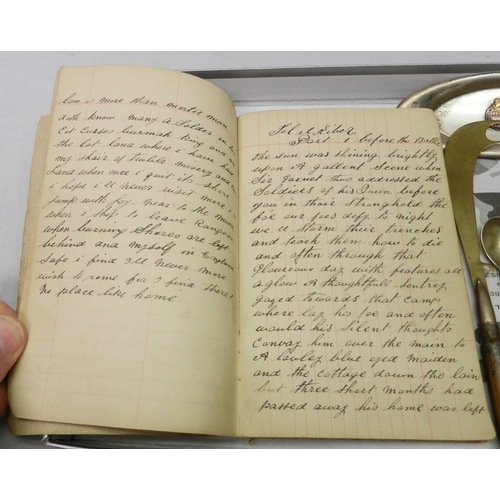 love is more than mortel man
doth know many a Solder in his
Cot Curses burmah King and
the lot land where i have had
my share of hutile misery and
Land when once i quit its shore
i hope i'll never visit more i
Jump with joy near to the moon
when i ship to leave Rangoon
when burning Shores are left
behind and myself in England
Safe i find I'll never more
wish to rome for I find there's
No place like home
Tel el Keber
Part 1 before the Battle
the sun was shining brightly
upon A gallent scene when
Sir Garnet thus addressed the
Soldiers of his Queen before
you in their Stronghold the
foe our foes defy to night
we'll Storm their trenches
and teach them how to die
and often through that
glourious day with features all
aglow A thoughtfull Sentrey
gazed towards that Camp
where lay his foe and often
would his Silent thoughts
Convay him over the main to
A lovley blue eyed maiden
and the cottage down the lain
but three short months had
passed away his home was left